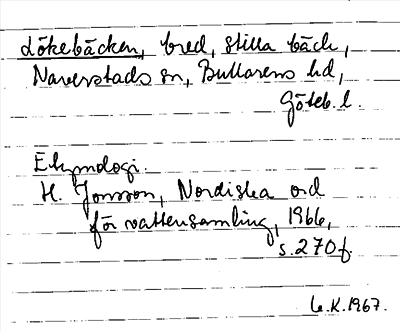 Lökebäcken, bred, stilla bäck,
Naverstads sn, Bullarens hd,
Göteb. l.
Etymologi.
H. Jonsson, Nordiska ord
för vattensamling, 1966,
s. 270 f.
G.K. 1967.